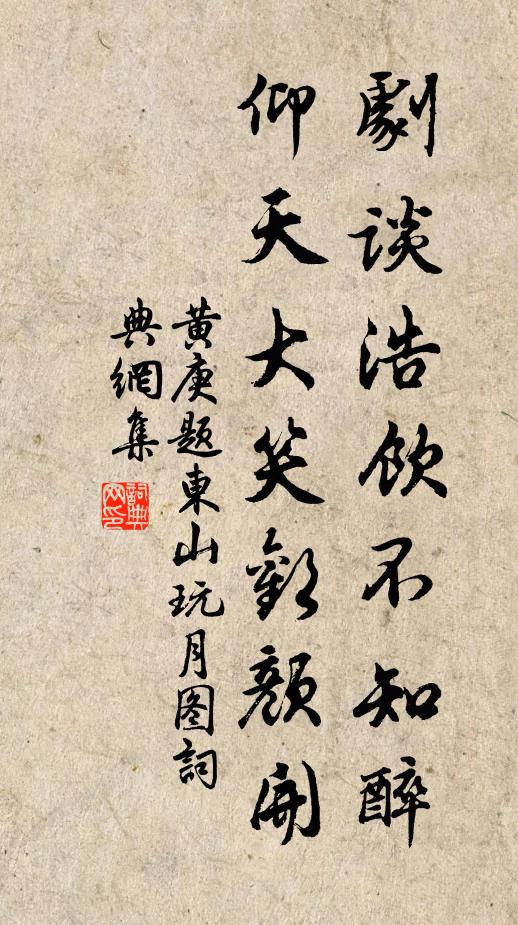 劇談浩飲不知醉
仰天大笑歡顏開
黄庚題東山玩月图詞
典網集
詞典
网印